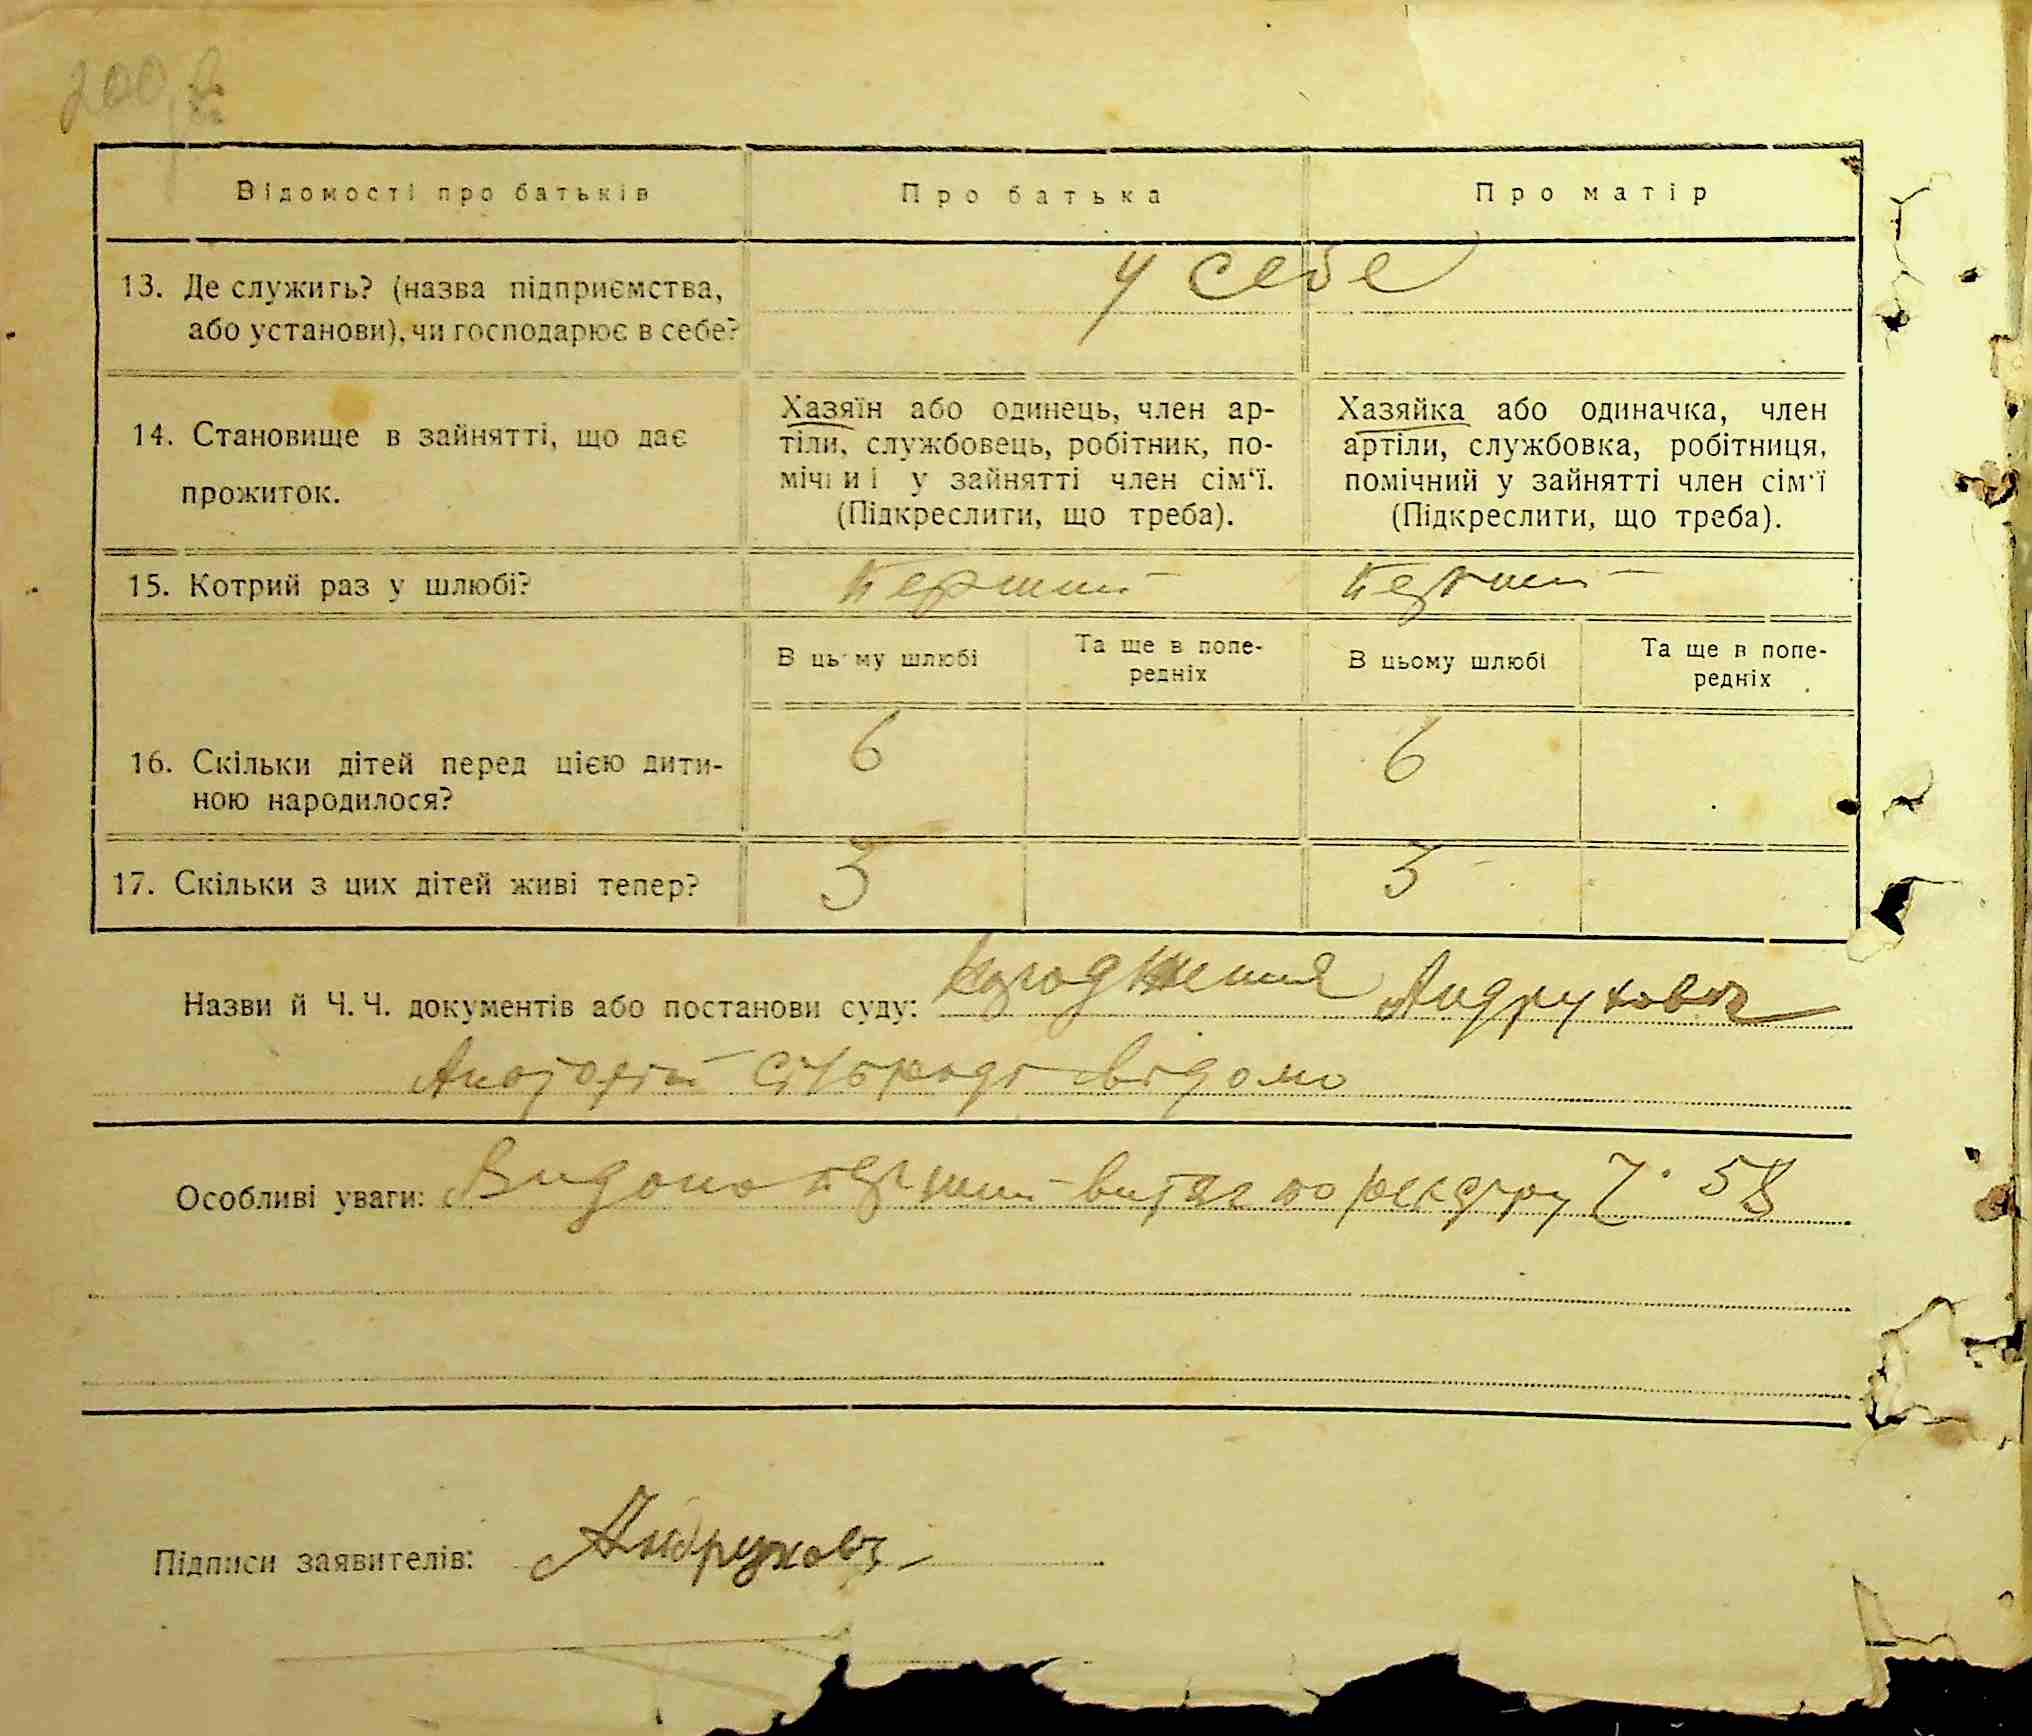 200
Відомості про батьків
Про батька
Про матір
13. Де служить? (назва підприємства, або установи), чи господарює в себе?
у себе
14. Становище в зайнятті, що дає прожиток.
Хазяїн або одинець, член ар-
тіли, службовець, робітник, по-
мічний у зайнятті член сім'ї.
(Підкреслити, що треба).
Хазяйка або одиначка, член
артіли, службовка, робітниця,
помічний у зайнятті член сім'ї
(Підкреслити, що треба).
15. Котрий раз у шлюбі?
перший
перший
В цьому шлюбі
Та ще в попе-
редніх
В цьому шлюбі
Та ще в попе-
редніх
16. Скільки дітей перед цією дити-
ною народилося?
6
6
17. Скільки з цих дітей живі тепер?
3
3
Назви й Ч. Ч. документів або постанови суду:
Андрухова
сільраді відомо
Особливі уваги: Видано перший витяг по реєстру Ч. 58
Підписи заявителів: Андрухов